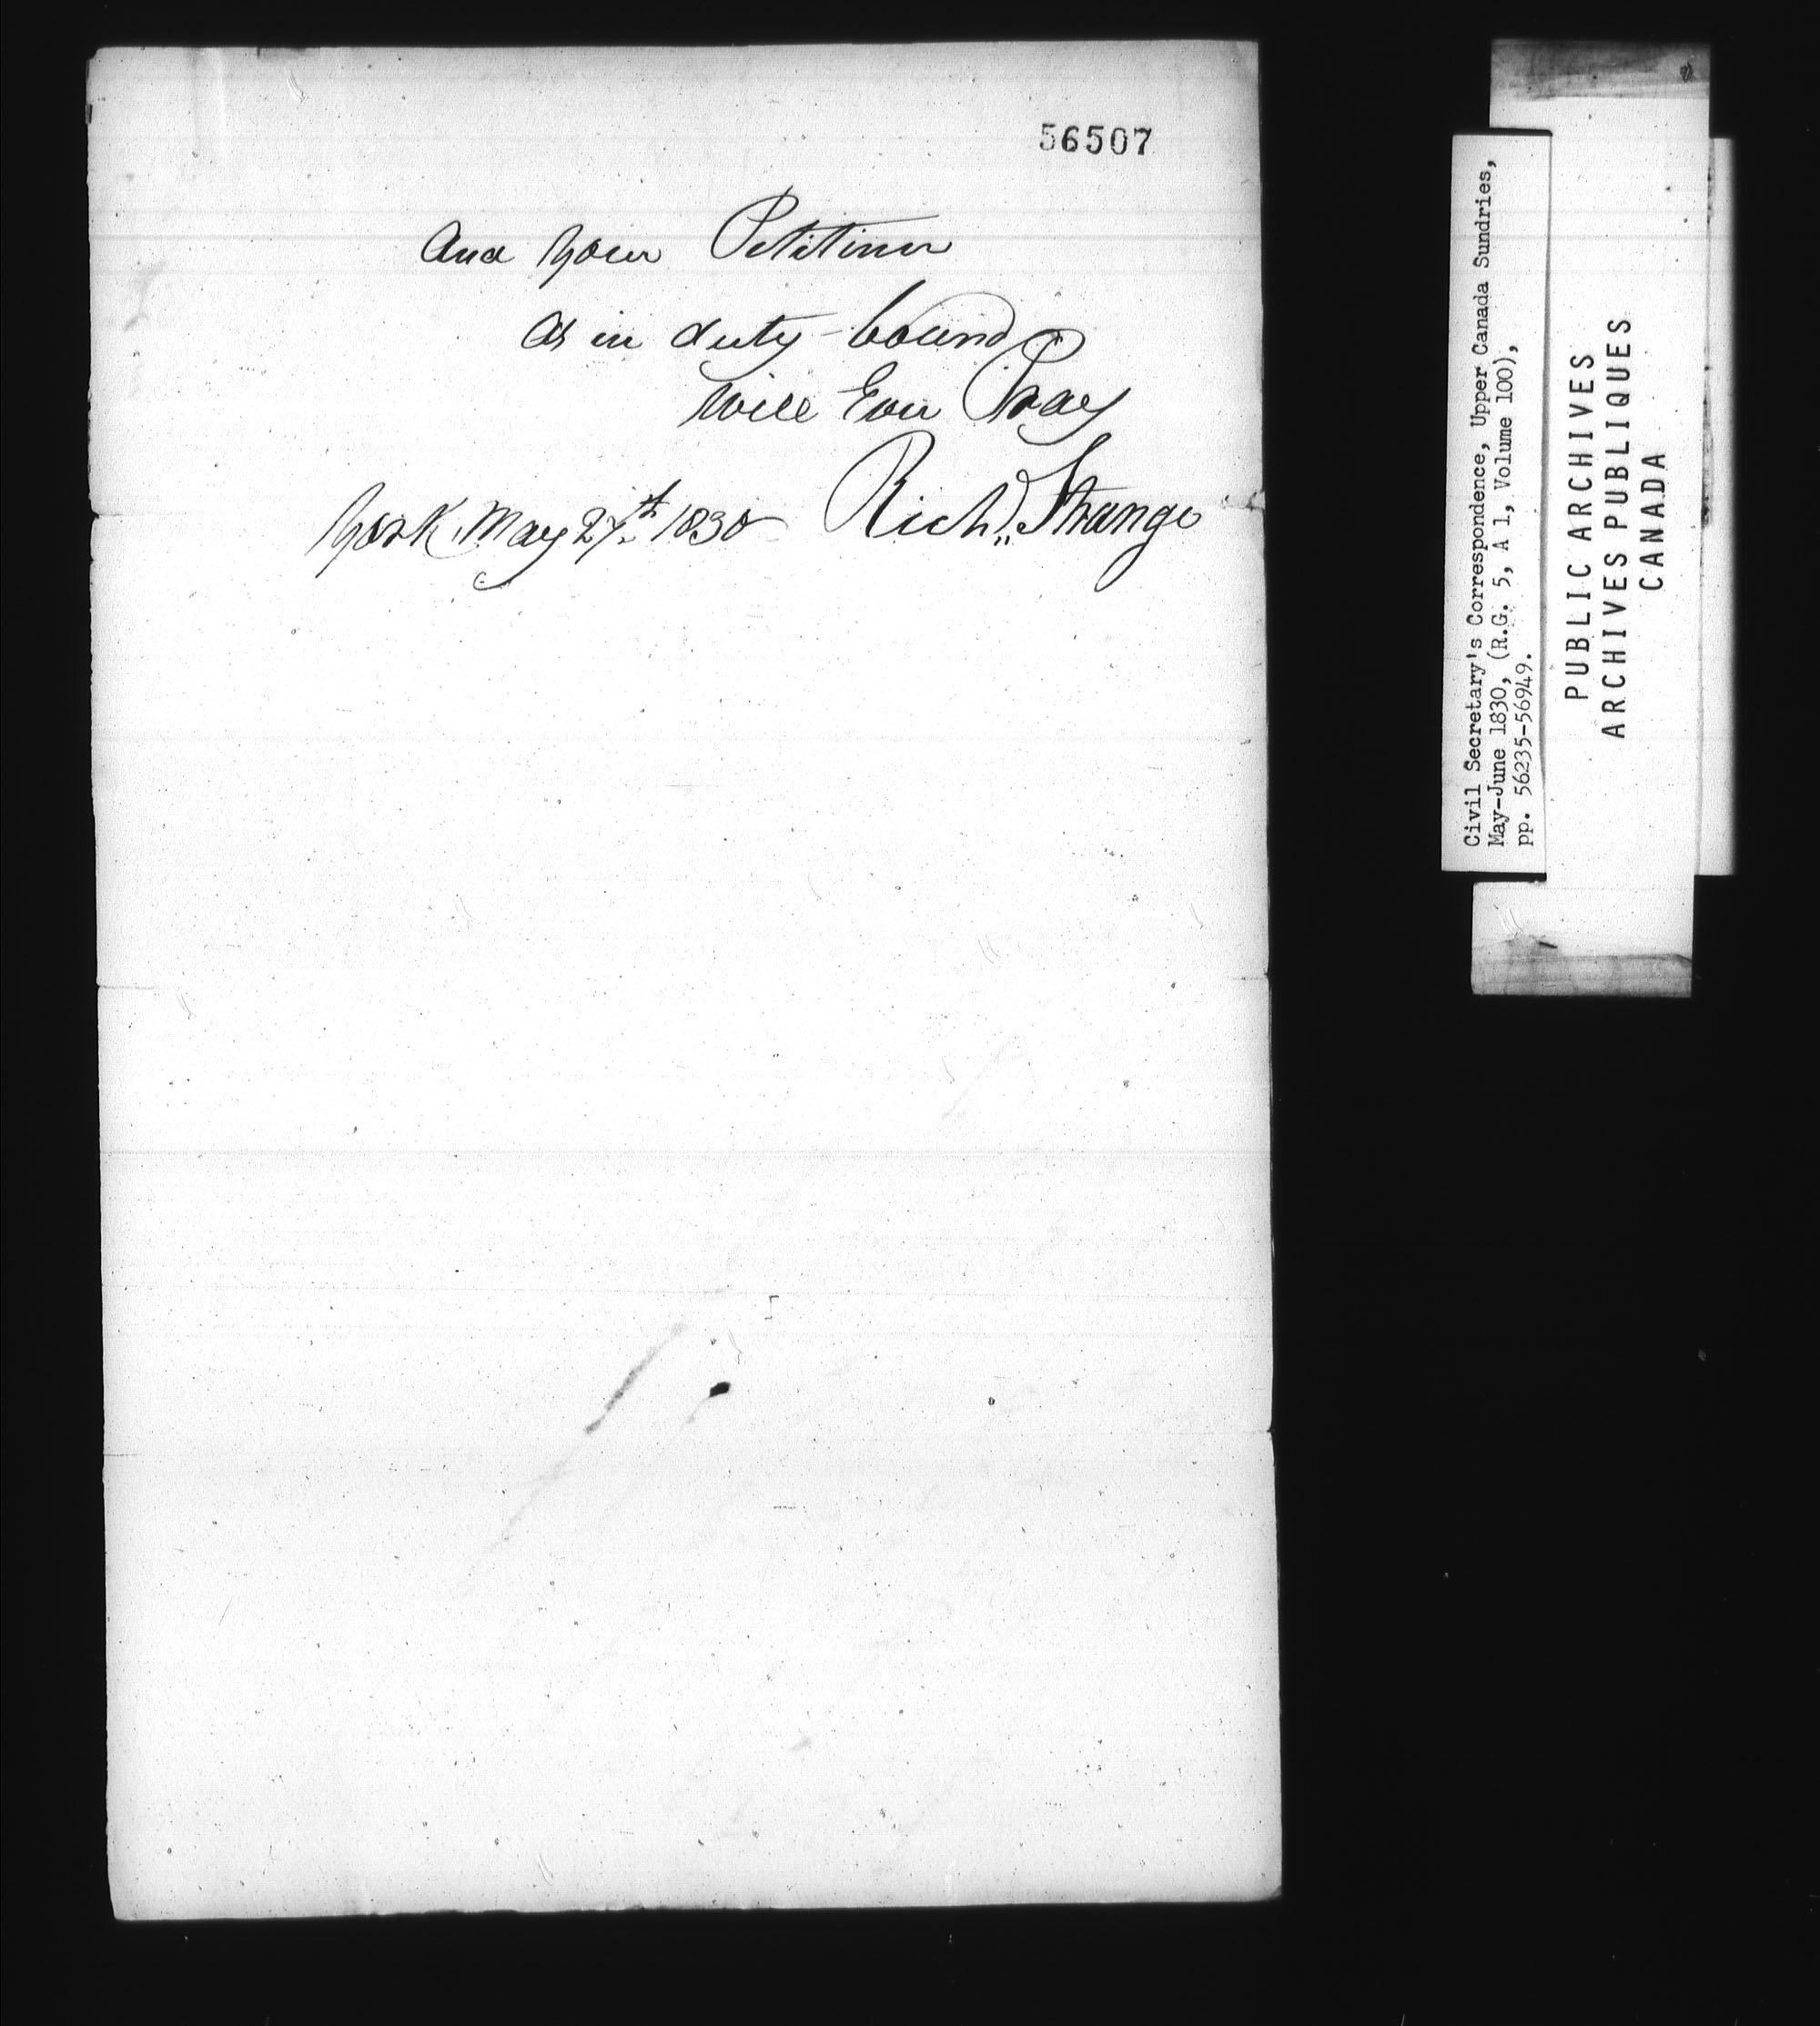 56507
And Your Petitioner
As in duty bound
Will Ever Pray
York May 27th 1830 Richd. Strange
Civil Secretary's Correspondence, Upper Canada Sundries,
May-June 1830, (R.G. 5, A 1, Volume 100),
pp. 56235-56949.
PUBLIC ARCHIVES
ARCHIVES PUBLIQUES
CANADA